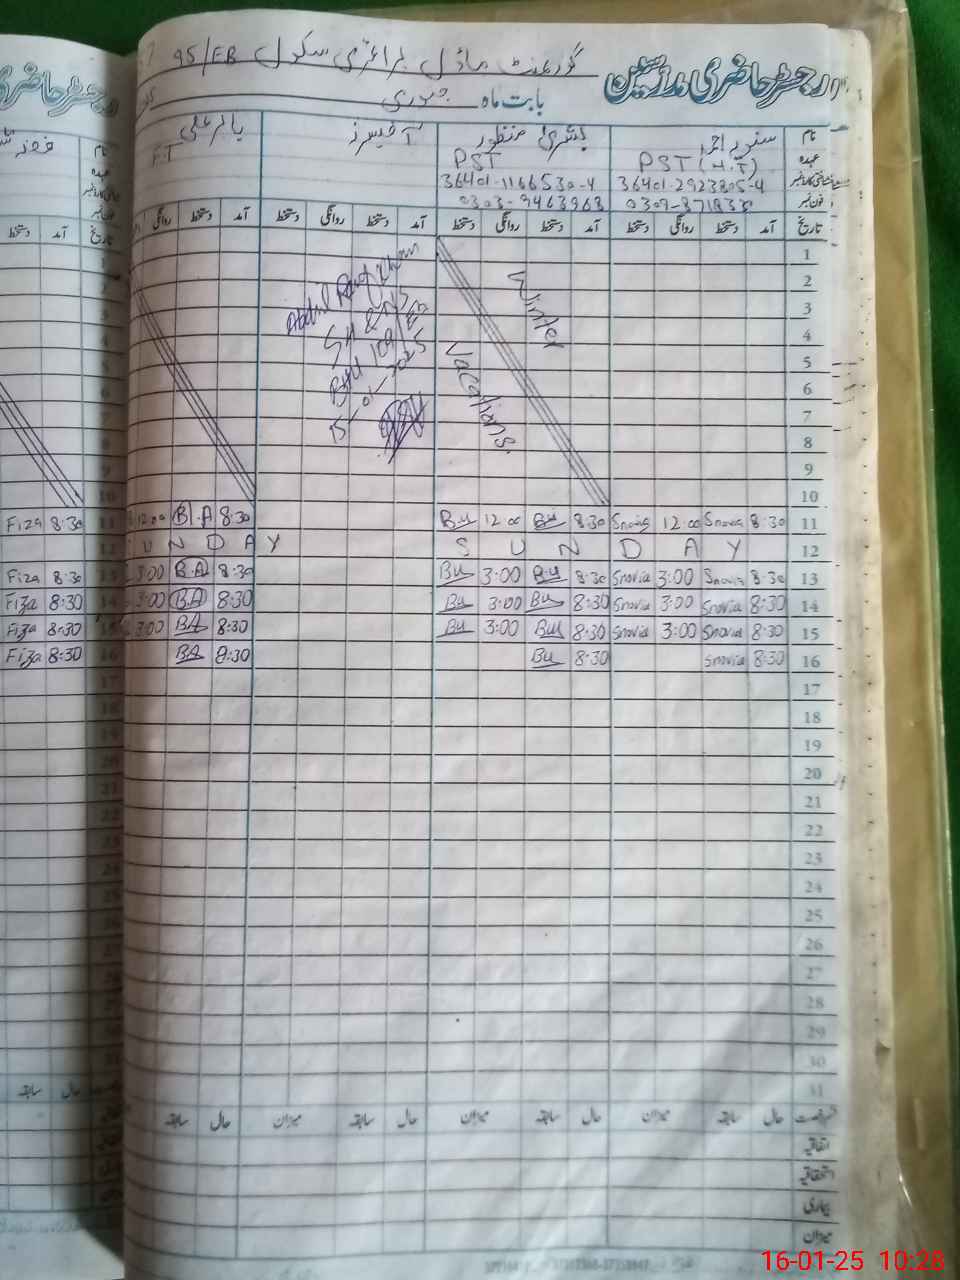 رجسٹر حاضری مدرسین
گورنمنٹ ماڈل پرائمری سکول 95/EB
بابت ماہ جنوری
نام
عہدہ
تاریخ
بشریٰ منظور
آفیسرز
PST (H.T)
PST
F.T
36401-2923805-4
36401-1166530-4
0303-9463963
آمد دستخط روانگی دستخط آمد دستخط روانگی دستخط آمد دستخط روانگی دستخط آمد دستخط روانگی
آمد دستخط
1
2
3
4
5
6
7
8
9
10
Winter
Vacations.
Abdul Rauf Khan
SH & NS
BHU 109/EB
15-01-2025
Fiza 8:30 12:00 B.A 8:30 Bu 12:00 Bu 8:30 Snovia 12:00 Snovia 8:30 11
U N D A Y S U N D A Y 12
Fiza 8:30 3:00 B.A 8:30 Bu 3:00 Bu 8:30 Snovia 3:00 Snovia 8:30 13
Fiza 8:30 3:00 BA 8:30 Bu 3:00 Bu 8:30 Snovia 3:00 Snovia 8:30 14
Fiza 8:30 3:00 BA 8:30 Bu 3:00 Bu 8:30 Snovia 3:00 Snovia 8:30 15
Fiza 8:30 BA 8:30 Bu 8:30 Snovia 8:30 16
17
18
19
20
21
22
23
24
25
26
27
28
29
30
31
حال سابقہ میزان حال سابقہ میزان حال سابقہ میزان حال سابقہ
حال سابقہ
اتفاقیہ
استحقاقیہ
بیماری
میزان
16-01-25 10:28